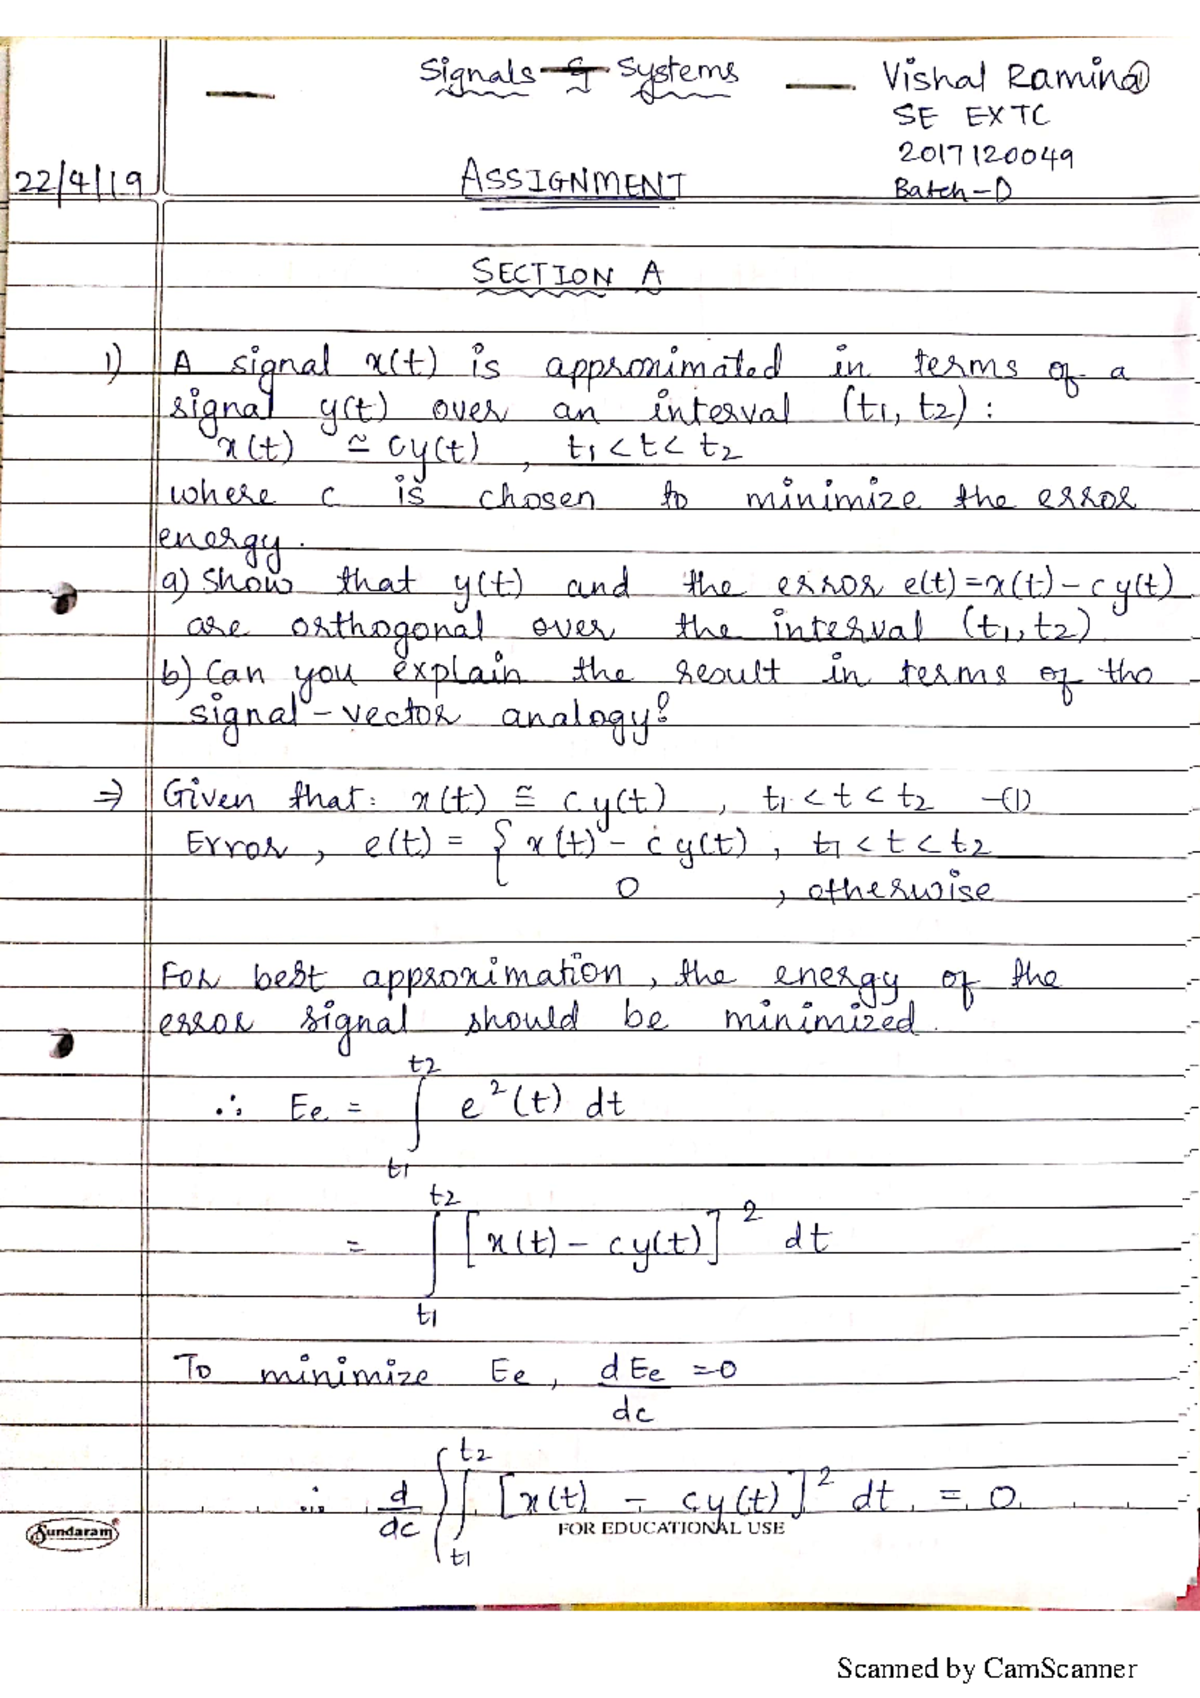 Signals & Systems — Vishal Ramina
SE EXTC
2017120049
22/4/19 ASSIGNMENT Batch-D
SECTION A
1) A signal x(t) is approximated in terms of a
signal y(t) over an interval (t1, t2):
x(t) ≃ cy(t), t1 < t < t2
where c is chosen to minimize the error
energy.
a) Show that y(t) and the error e(t) = x(t) - cy(t)
are orthogonal over the interval (t1, t2)
b) Can you explain the result in terms of the
signal-vector analogy?
⇒ Given that: x(t) ≅ cy(t), t1 < t < t2 -(1)
Error, e(t) = { x(t) - cy(t), t1 < t < t2
0, otherwise
For best approximation, the energy of the
error signal should be minimized.
∴ Ee = ∫_{t1}^{t2} e²(t) dt
= ∫_{t1}^{t2} [x(t) - cy(t)]² dt
To minimize Ee, dEe/dc = 0
∴ d/dc { ∫_{t1}^{t2} [x(t) - cy(t)]² dt = 0
Sundaram
FOR EDUCATIONAL USE
Scanned by CamScanner